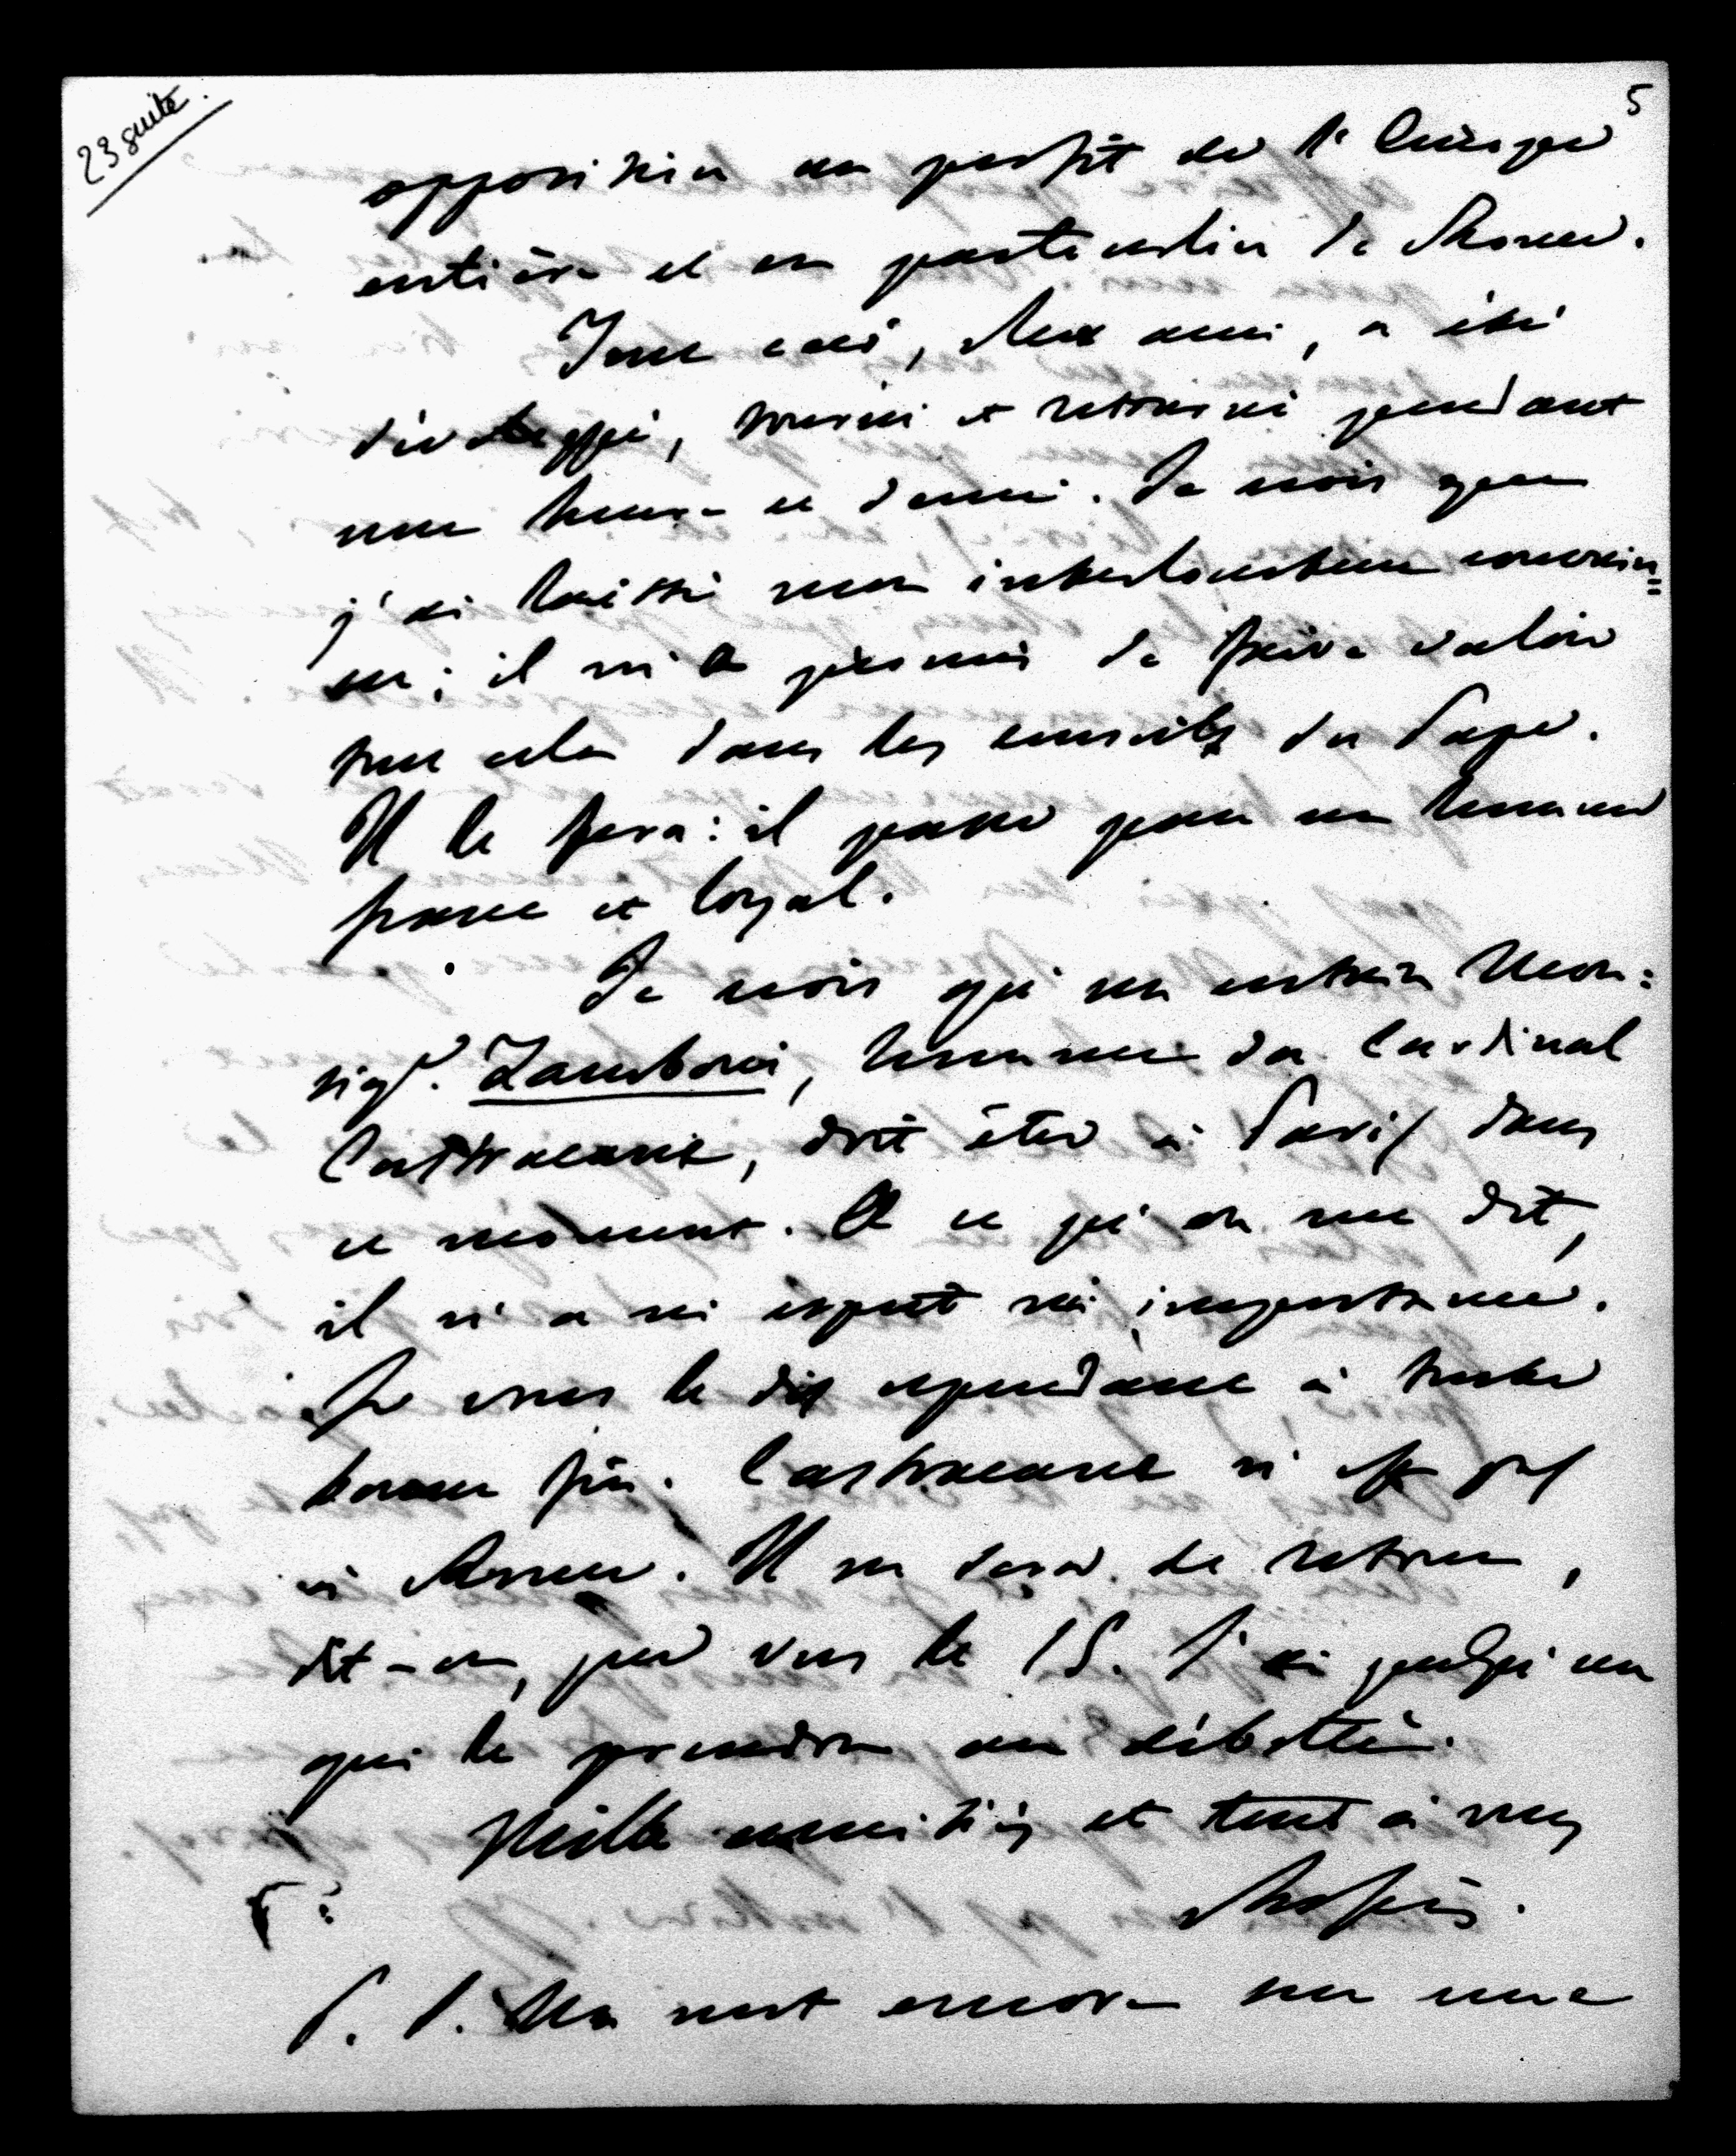 23 suite.
5
opposition au profit de l'Europe
entière et en particulier de Rome.
Tout cela, cher ami, a été
développé, tourné et retourné pendant
une heure et demie. Je crois que
j'ai laissé mon interlocuteur convain=
cu ; il m'a promis de faire valoir
tout cela dans les conseils du Pape.
Il le fera : il passe pour un homme
franc et loyal.
Je crois qu'un certain Mon=
sigr. Zamboni, homme du Cardinal
Castracane, doit être à Paris dans
ce moment. A ce qu'on me dit,
il n'a ni esprit ni importance.
Je vous le dis cependant à toute
bonne fin. Castracane n'est pas
à Rome. Il ne sera de retour,
dit-on, que vers le 15. J'ai quelqu'un
qui le prendra au débotté.
Mille amitiés et tout à vous
Rossi.
P. S. Un mot encore sur une